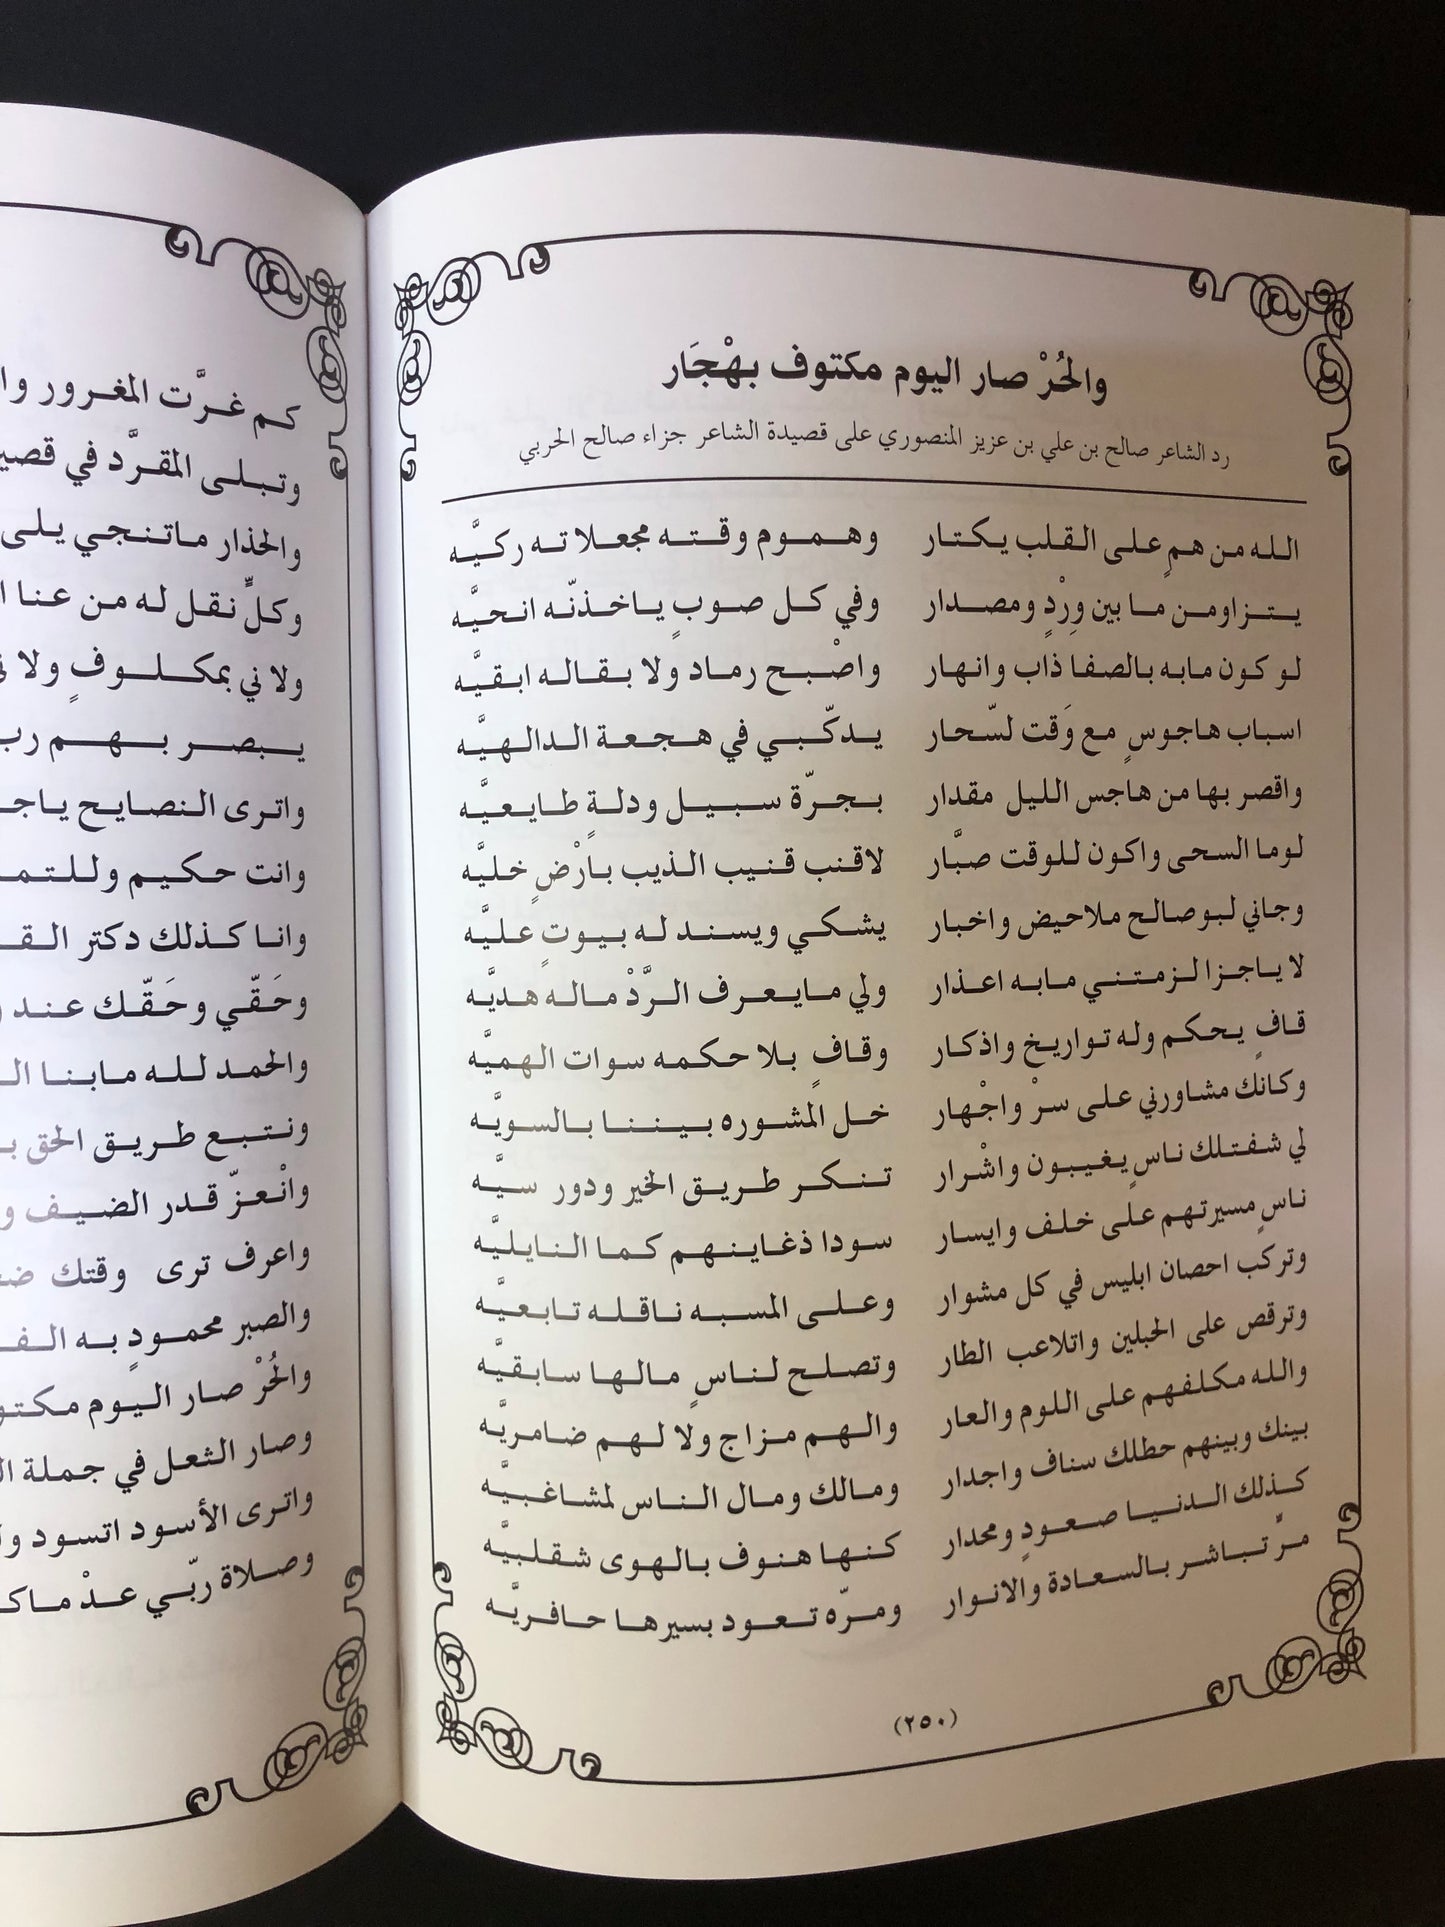 والحُرْ صار اليوم مكتوف بهْجَار
رد الشاعر صالح بن علي بن عزيز المنصوري على قصيدة الشاعر جزاء صالح الحربي
الله من همٍ على القلب يكتار وهموم وقته مجعلاته ركيَّه
يتزاومن ما بين وِرْدٍ ومصدار وفي كل صوبٍ ياخذنّه انحيَّه
لو كون مابه بالصفا ذاب وانهار واصْبح رماد ولا بقاله ابقيَّه
اسباب هاجوسٍ مع وَقت لسّحار يدكّبي في هجعة الدالهيَّه
واقصر بها من هاجس الليل مقدار بجرّة سبيل ودلةٍ طايعيَّه
لوما السحى واكون للوقت صبَّار لاقنب قنيب الذيب بارْضٍ خليَّه
وجاني لبوصالح ملاحيض واخبار يشكي ويسند له بيوتٍ عليَّه
لا ياجزا لزمتني مابه اعذار ولي مايعرف الرَّدْ ماله هديَّه
قافٍ يحكم وله تواريخ واذكار وقافٍ بلا حكمه سوات الهميَّه
وكانك مشاورني على سرْ واجْهار خل المشوره بيننا بالسويَّه
لي شفتلك ناسٍ يغيبون واشْرار تنكر طريق الخير ودور سيَّه
ناسٍ مسيرتهم على خلف وايسار سودا ذغاينهم كما النايليَّه
وتركب احصان ابليس في كل مشوار وعلى المسبه ناقله تابعيَّه
وترقص على الحبلين واتلاعب الطار وتصلح لناسٍ مالها سابقيَّه
والله مكلفهم على اللوم والعار والهم مزاج ولا لهم ضامريَّه
بينك وبينهم حطلك سناف واجدار ومالك ومال الناس لمشاغبيَّه
كذلك الدنيا صعودٍ ومحدار كنها هنوف بالهوى شقلبيَّه
مرٍّ تباشر بالسعادة والانوار ومرّه تعود بسيرها حافريَّه
(٢٥٠)
كم غرَّت المغرور
وتبلى المقرَّد في
والحذار ماتنجي
وكلٍّ نقل له من عنا
ولا ني بمكلوفٍ ولا
يبصر بهم
واترى النصايح
وانت حكيم
وانا كذلك دكتر
وحَقّي وحَقّك عند
والحمد لله مابنا
ونتبع طريق الحق
وانْعزّ قدر الضيف
واعرف ترى وقتك
والصبر محمودٍ به
والحُرْ صار اليوم
وصار الثعل في جملة
واترى الأسود اتسود
وصلاة ربّي عدْ